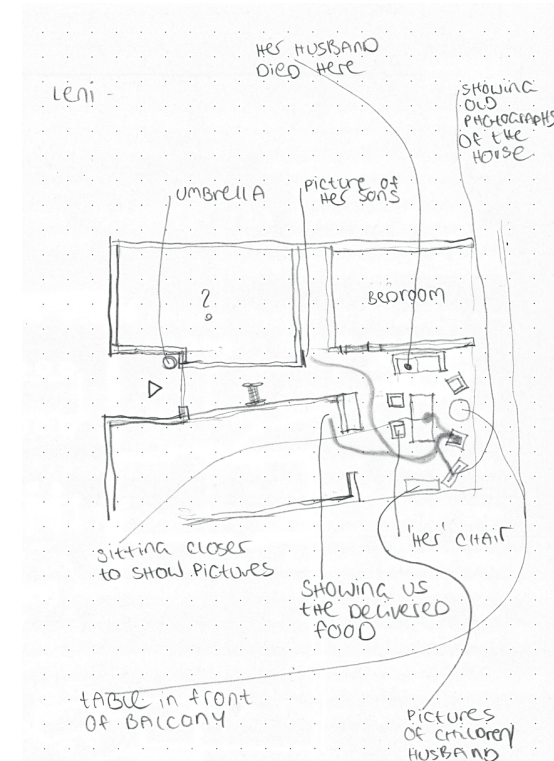 Her HUSBAND
DIED Here
Leni -
SHOWING
OLD
PHOTOGRAPHS
Of the
House
UMBRELLA
picture of
Her sons
?
BEDROOM
'Her' CHAIR
sitting closer
to SHOW PICTURES
SHOWING US
the DELIVERED
FOOD
tABLE in front
OF BALCONY
Pictures
OF CHILDREN/
HUSBAND